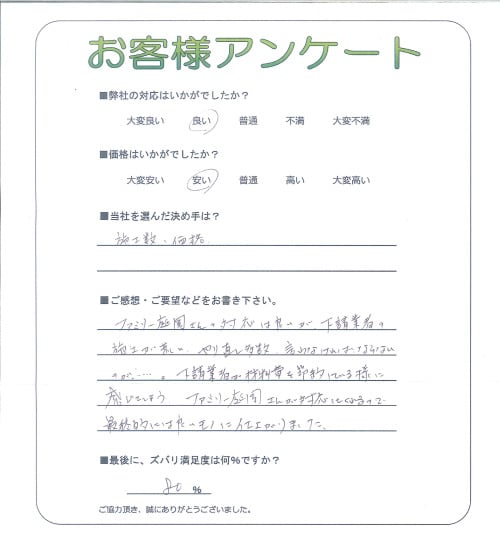 お客様アンケート
■弊社の対応はいかがでしたか？
大変良い 良い 普通 不満 大変不満
■価格はいかがでしたか？
大変安い 安い 普通 高い 大変高い
■当社を選んだ決め手は？
施工数・価格
■ご感想・ご要望などをお書き下さい。
ファミリー庭園さんの対応は良いが、下請業者の
施工が荒い。やり直し多数、言わなければならない
のが……。下請業者が材料費を節約している様に
感じてしまう ファミリー庭園さんが対応してくれるので
最終的には良いモノに仕上がりました。
■最後に、ズバリ満足度は何%ですか？
80 %
ご協力頂き、誠にありがとうございました。